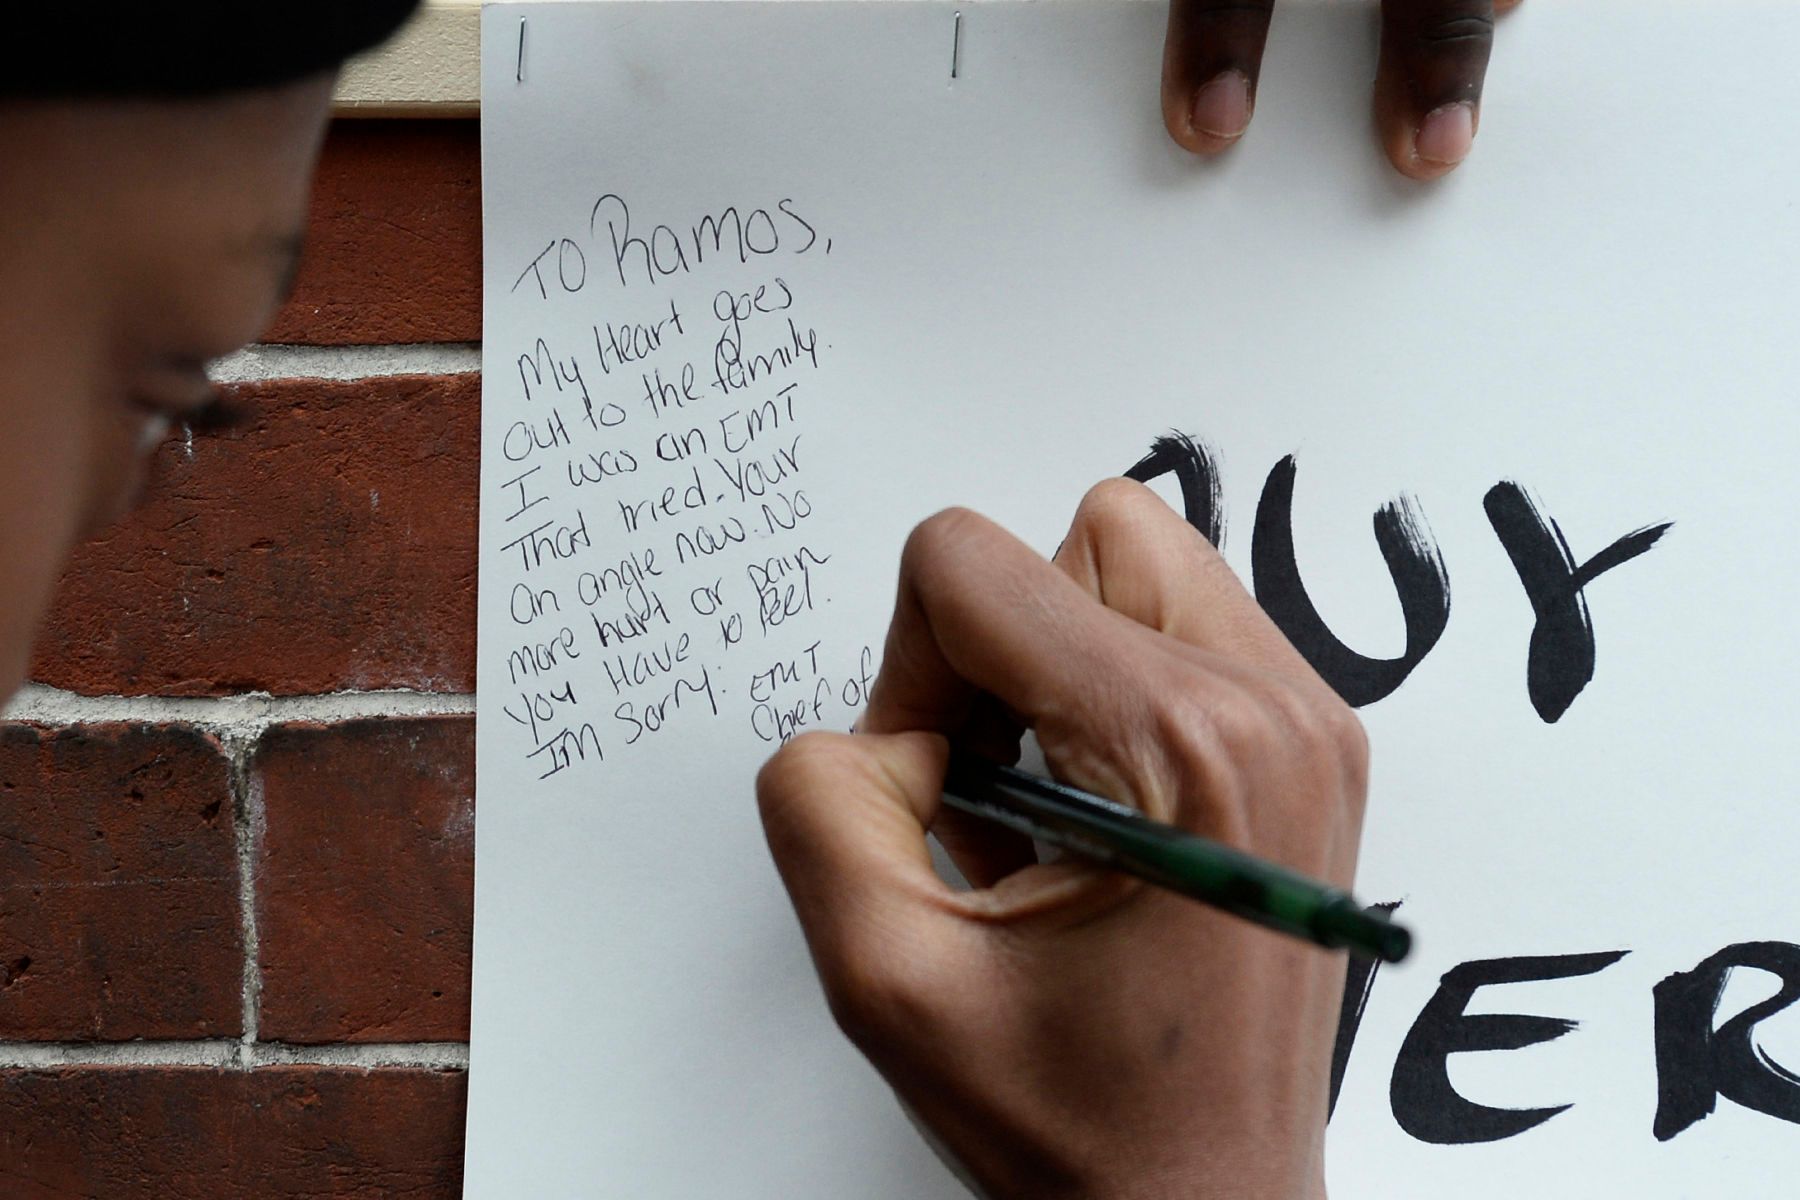 TO Ramos,
My Heart goes
out to the family.
I was an EMT
That tried. Your
an angle now. No
more hurt or pain
you Have to feel.
I'm Sorry. EMT
Chief of
UY
ER